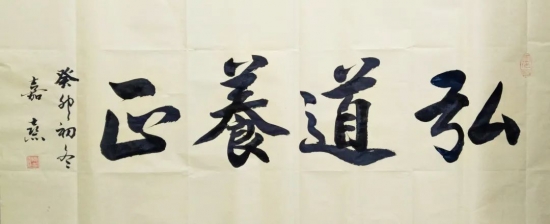 弘道養正
癸卯初冬
嘉熹